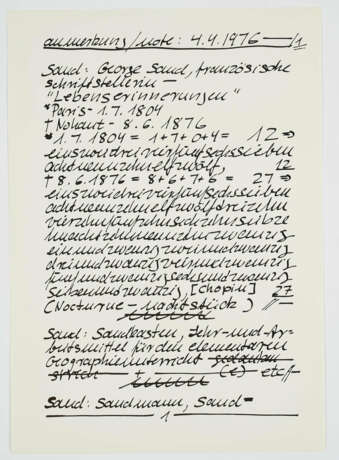 anmerkung/note: 4.4.1976 — /1
Sand: George Sand, französische
schriftstellerin —
"Lebenserinnerungen"
*Paris - 1.7.1804
† Nohant - 8.6.1876
*1.7.1804 = 1+7+0+4= 12 ⇒
einszweidreivierfünfsechssieben
achtneunzehnelfzwölf, 12
† 8.6.1876 = 8+6+7+6 = 27 ⇒
einszweidreivierfünfsechssieben
achtneunzehnelfzwölfdreizehn
vierzehnfünfzehnsechzehnsiebze
hnachtzehnneunzehnzwanzig
einundzwanzigzweiundzwanzig
dreiundzwanzigvierundzwanzig
fünfundzwanzigsechsundzwanzig
siebenundzwanzig, [Chopin] 27
(Nocturne - nachtstück)
Sand: Sandkasten, Lehr-und-Ar-
beitsmittel für den elementaren
Geographieunterricht
+ (e) etc
Sand: Sandmann, Sand-
1